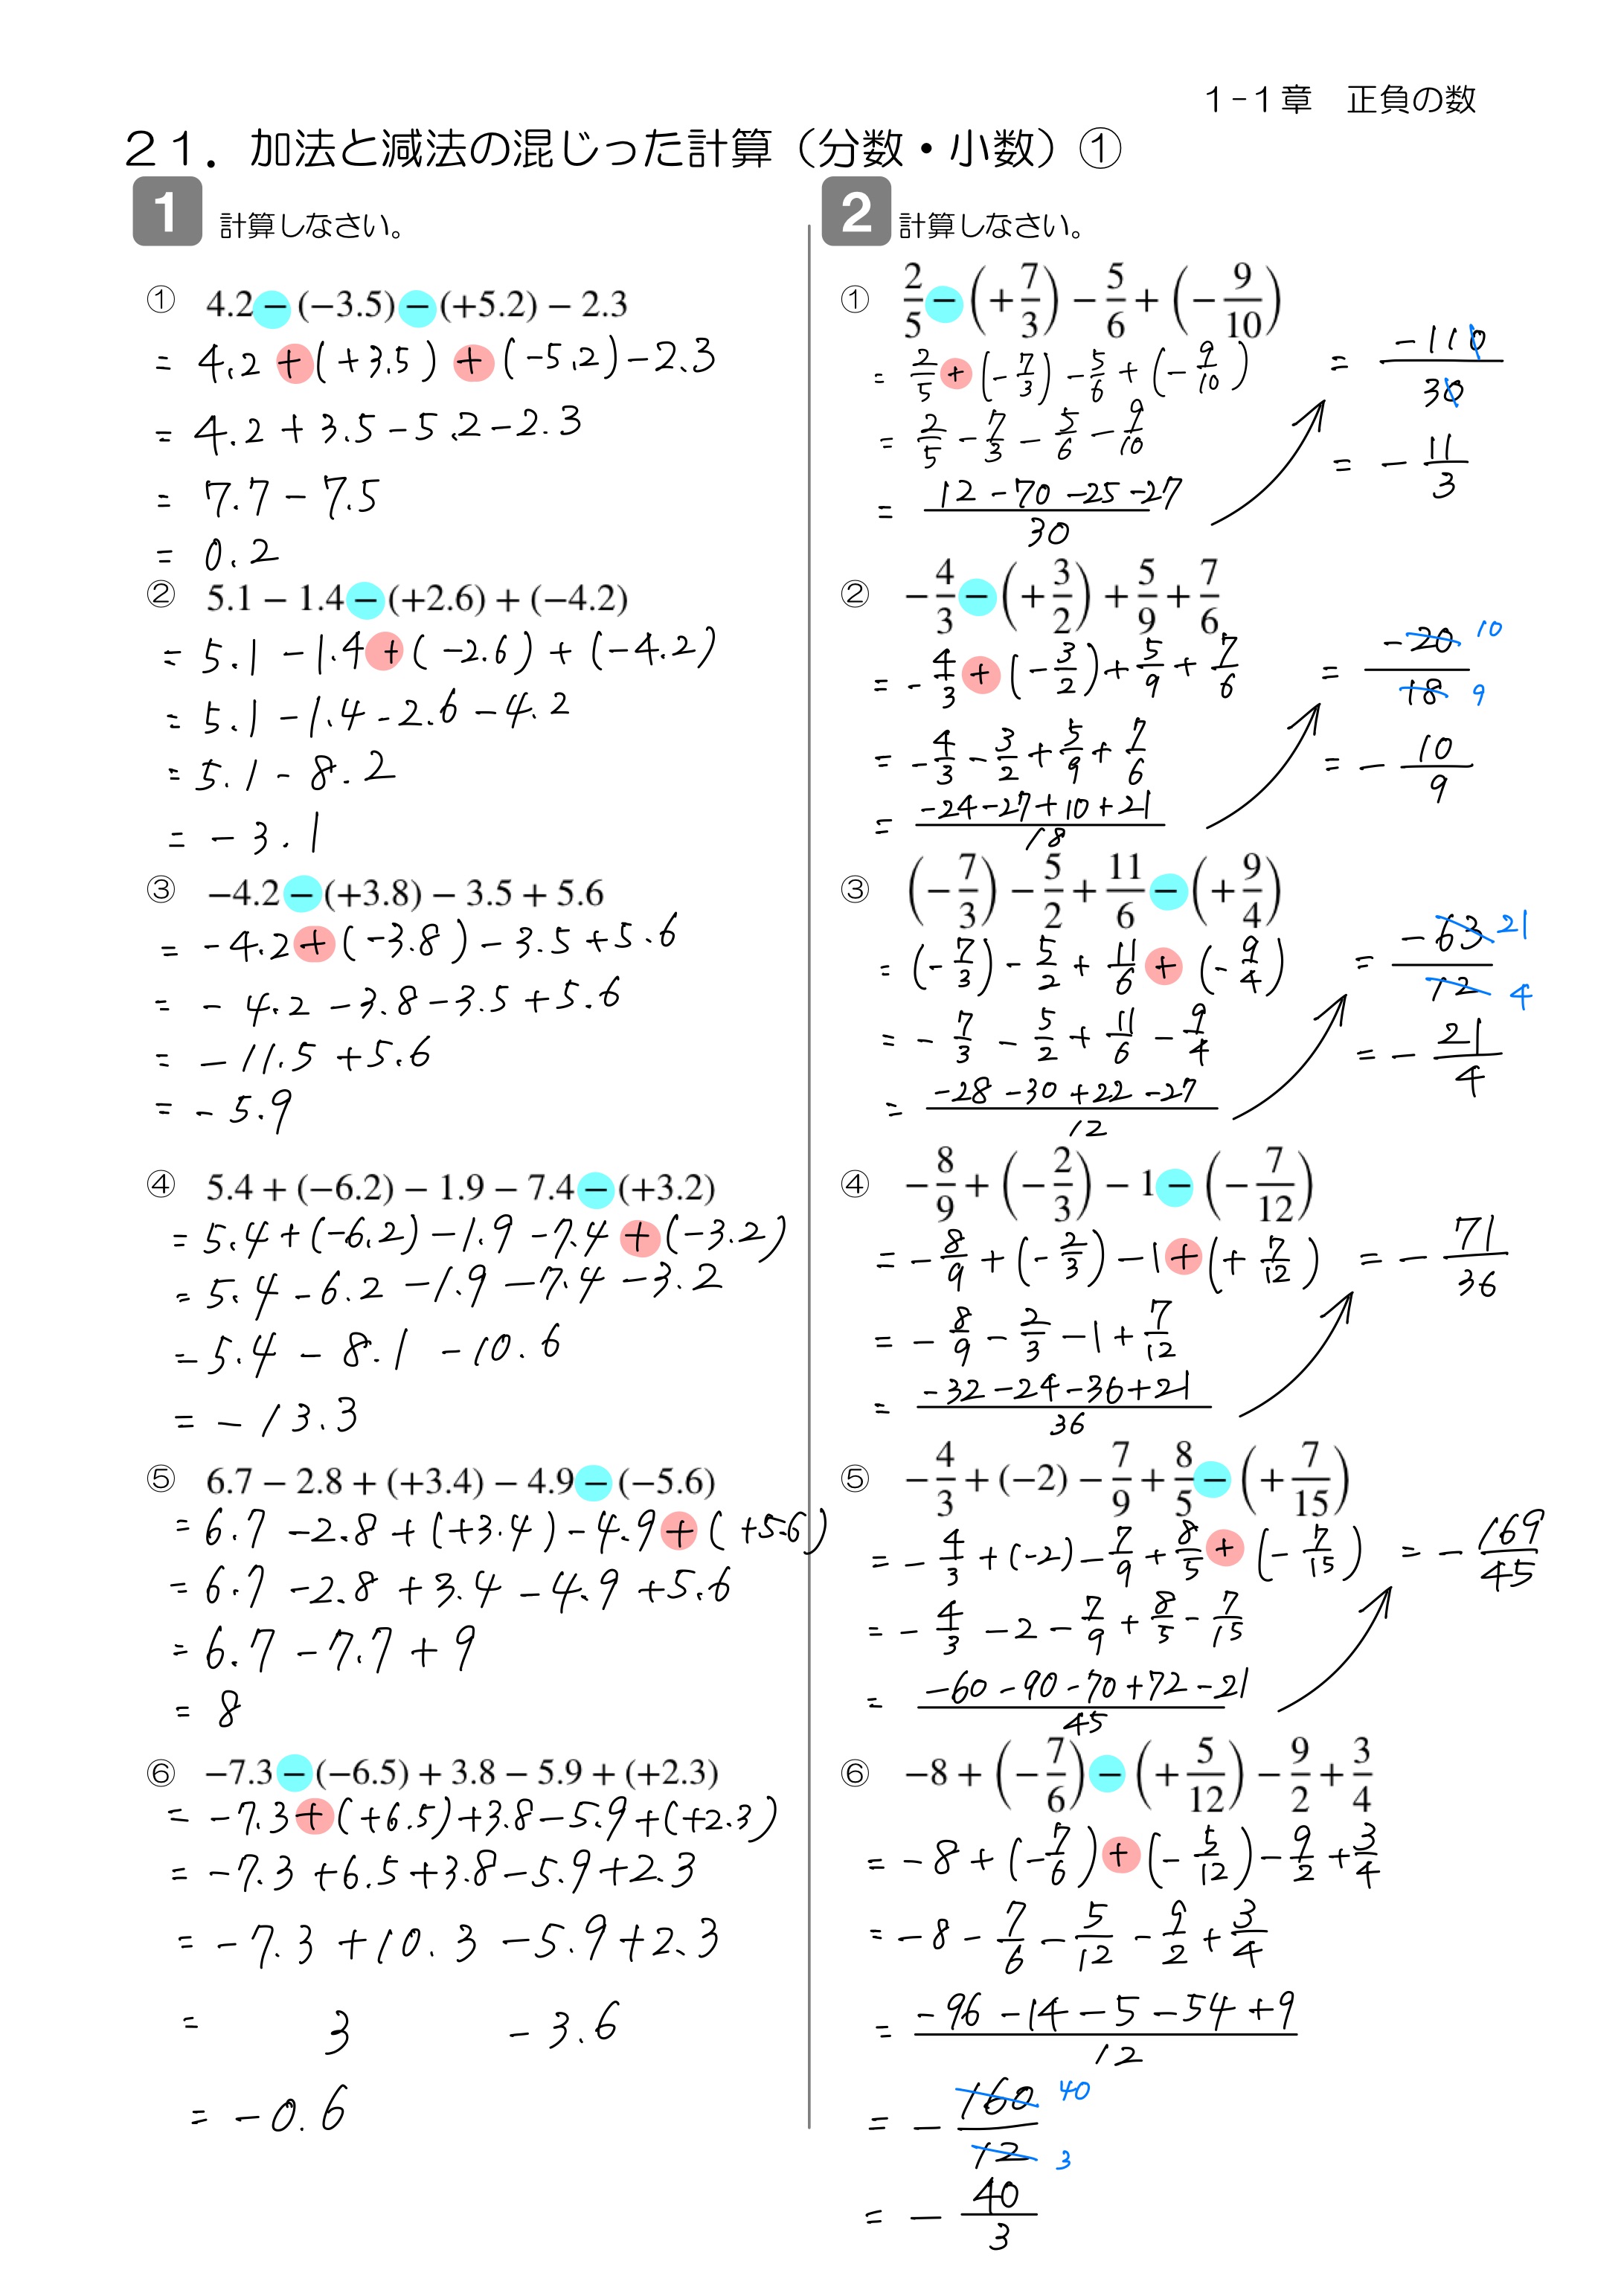 1-1章　正負の数
２１．加法と減法の混じった計算（分数・小数）①
1 計算しなさい。
① 4.2 − (−3.5) − (+5.2) − 2.3
= 4.2 + (+3.5) + (-5.2) - 2.3
= 4.2 + 3.5 - 5.2 - 2.3
= 7.7 - 7.5
= 0.2
② 5.1 − 1.4 − (+2.6) + (−4.2)
= 5.1 - 1.4 + (-2.6) + (-4.2)
= 5.1 - 1.4 - 2.6 - 4.2
= 5.1 - 8.2
= -3.1
③ −4.2 − (+3.8) − 3.5 + 5.6
= -4.2 + (-3.8) - 3.5 + 5.6
= -4.2 - 3.8 - 3.5 + 5.6
= -11.5 + 5.6
= -5.9
④ 5.4 + (−6.2) − 1.9 − 7.4 − (+3.2)
= 5.4 + (-6.2) - 1.9 - 7.4 + (-3.2)
= 5.4 - 6.2 - 1.9 - 7.4 - 3.2
= 5.4 - 8.1 - 10.6
= -13.3
⑤ 6.7 − 2.8 + (+3.4) − 4.9 − (−5.6)
= 6.7 - 2.8 + (+3.4) - 4.9 + (+5.6)
= 6.7 - 2.8 + 3.4 - 4.9 + 5.6
= 6.7 - 7.7 + 9
= 8
⑥ −7.3 − (−6.5) + 3.8 − 5.9 + (+2.3)
= -7.3 + (+6.5) + 3.8 - 5.9 + (+2.3)
= -7.3 + 6.5 + 3.8 - 5.9 + 2.3
= -7.3 + 10.3 - 5.9 + 2.3
= 3 - 3.6
= -0.6
2 計算しなさい。
① 2/5 − (+7/3) − 5/6 + (−9/10)
= 2/5 + (-7/3) - 5/6 + (-9/10)
= 2/5 - 7/3 - 5/6 - 9/10
= (12 - 70 - 25 - 27)/30
= -110/30
= -11/3
② −4/3 − (+3/2) + 5/9 + 7/6
= -4/3 + (-3/2) + 5/9 + 7/6
= -4/3 - 3/2 + 5/9 + 7/6
= (-24 - 27 + 10 + 21)/18
= -20/18 10 9
= -10/9
③ (−7/3) − 5/2 + 11/6 − (+9/4)
= (-7/3) - 5/2 + 11/6 + (-9/4)
= -7/3 - 5/2 + 11/6 - 9/4
= (-28 - 30 + 22 - 27)/12
= -63/12 21 4
= -21/4
④ −8/9 + (−2/3) − 1 − (−7/12)
= -8/9 + (-2/3) - 1 + (+7/12)
= -8/9 - 2/3 - 1 + 7/12
= (-32 - 24 - 36 + 21)/36
= -71/36
⑤ −4/3 + (−2) − 7/9 + 8/5 − (+7/15)
= -4/3 + (-2) - 7/9 + 8/5 + (-7/15)
= -4/3 - 2 - 7/9 + 8/5 - 7/15
= (-60 - 90 - 70 + 72 - 21)/45
= -169/45
⑥ −8 + (−7/6) − (+5/12) − 9/2 + 3/4
= -8 + (-7/6) + (-5/12) - 9/2 + 3/4
= -8 - 7/6 - 5/12 - 9/2 + 3/4
= (-96 - 14 - 5 - 54 + 9)/12
= -160/12 40 3
= -40/3